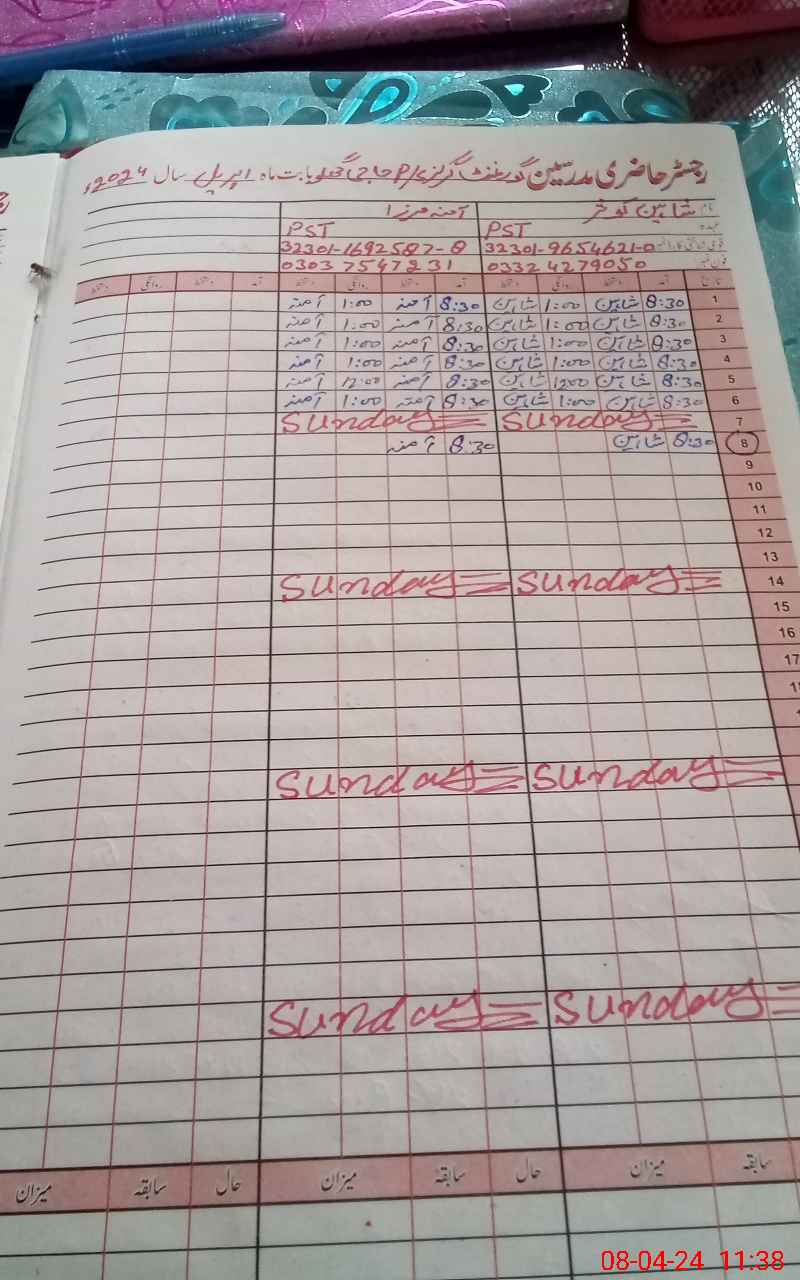 رجسٹر حاضری مدرسین گورنمنٹ گرلز P/S حاجی گھلو بابت ماہ اپریل سال 2024ء
نام شاہین کوثر آمنہ مرزا
عہدہ PST PST
قومی شناختی کارڈ نمبر 32301-9654621-0 32301-1692587-8
فون نمبر 0332 4279050 0303 7547231
تاریخ آمد دستخط روانگی دستخط آمد دستخط روانگی دستخط آمد دستخط روانگی دستخط
1 8:30 شاہین 1:00 شاہین 8:30 آمنہ 1:00 آمنہ
2 8:30 شاہین 1:00 شاہین 8:30 آمنہ 1:00 آمنہ
3 8:30 شاہین 1:00 شاہین 8:30 آمنہ 1:00 آمنہ
4 8:30 شاہین 1:00 شاہین 8:30 آمنہ 1:00 آمنہ
5 8:30 شاہین 12:00 شاہین 8:30 آمنہ 12:00 آمنہ
6 8:30 شاہین 1:00 شاہین 8:30 آمنہ 1:00 آمنہ
7 Sunday Sunday
8 8:30 شاہین 8:30 آمنہ
9
10
11
12
13
14 Sunday Sunday
15
16
17
Sunday Sunday
Sunday Sunday
سابقہ میزان حال سابقہ میزان حال سابقہ میزان
08-04-24 11:38